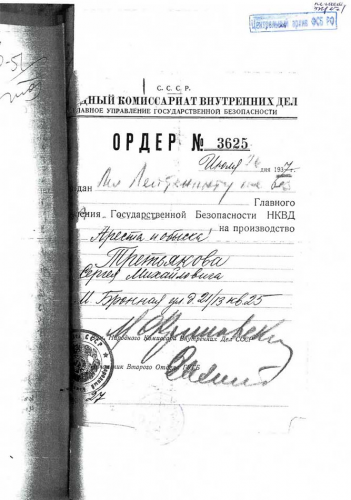 Центральный архив ФСБ РФ
С. С. С. Р.
ДНЫЙ КОМИССАРИАТ ВНУТРЕННИХ ДЕЛ
ЛАВНОЕ УПРАВЛЕНИЕ ГОСУДАРСТВЕННОЙ БЕЗОПАСНОСТИ
ОРДЕР № 3625
Июля дня 1937
дан Мл Лейтенанту
Главного
ения Государственной Безопасности НКВД
на производство
Ареста и обыска
Третьякова
Сергея Михайловича
М. Бронная ул д. 21/13 кв. 25
Народного Комиссара Внутренних Дел СССР
Второго
27